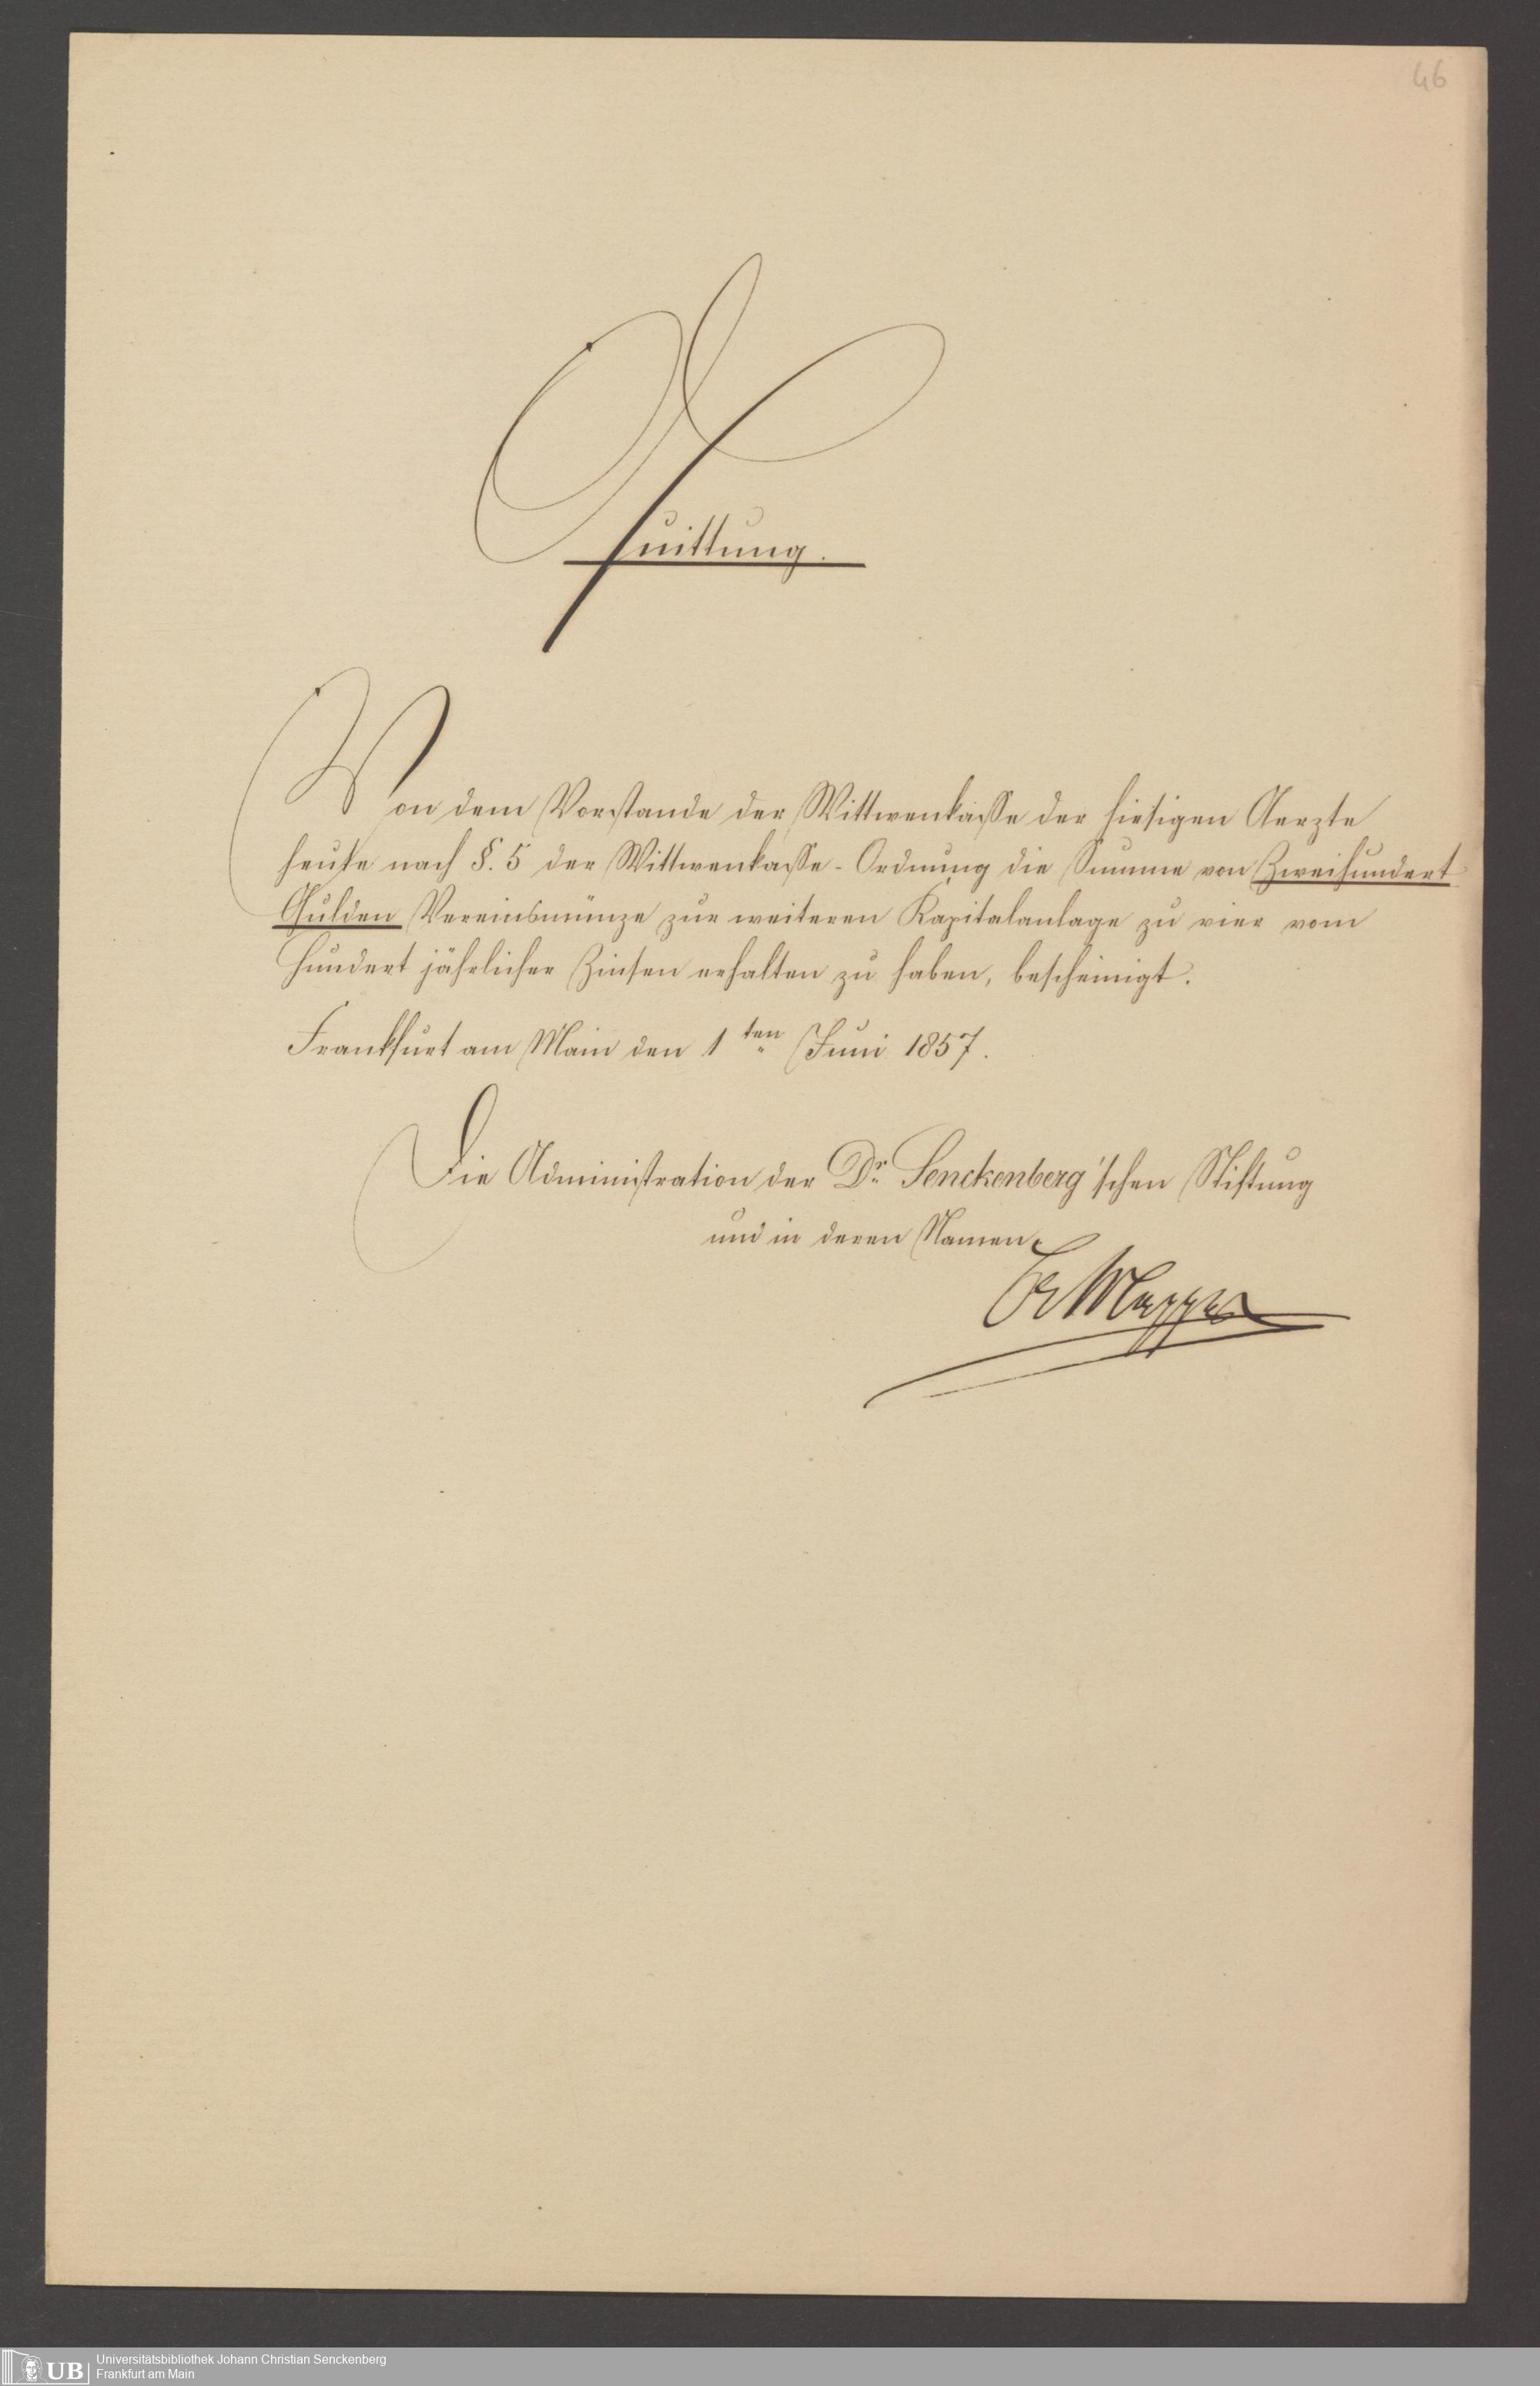 46
Quittung.
Von dem Vorstande der Wittwenkasse der hiesigen Aerzte
heute nach §. 5 der Wittwenkasse-Ordnung die Summe von Zweihundert
Gulden Vereinsmünze zur weiteren Kapitalanlage zu vier vom
Hundert jährlicher Zinsen erhalten zu haben, bescheinigt.
Frankfurt am Main den 1ten Juni 1857.
Die Administration der Dr. Senckenberg'schen Stiftung
und in deren Namen
UB Universitätsbibliothek Johann Christian Senckenberg
Frankfurt am Main